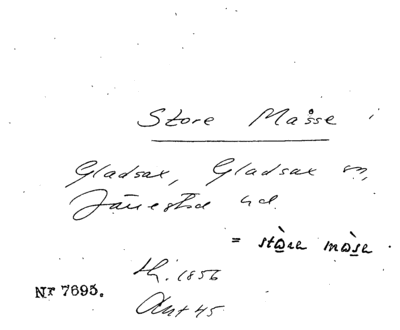 Store Måsse
Gladsax, Gladsax sn,
Järrestad hd.
= stòre mòse
lh. 1856
Nr 7695.
Ant 45